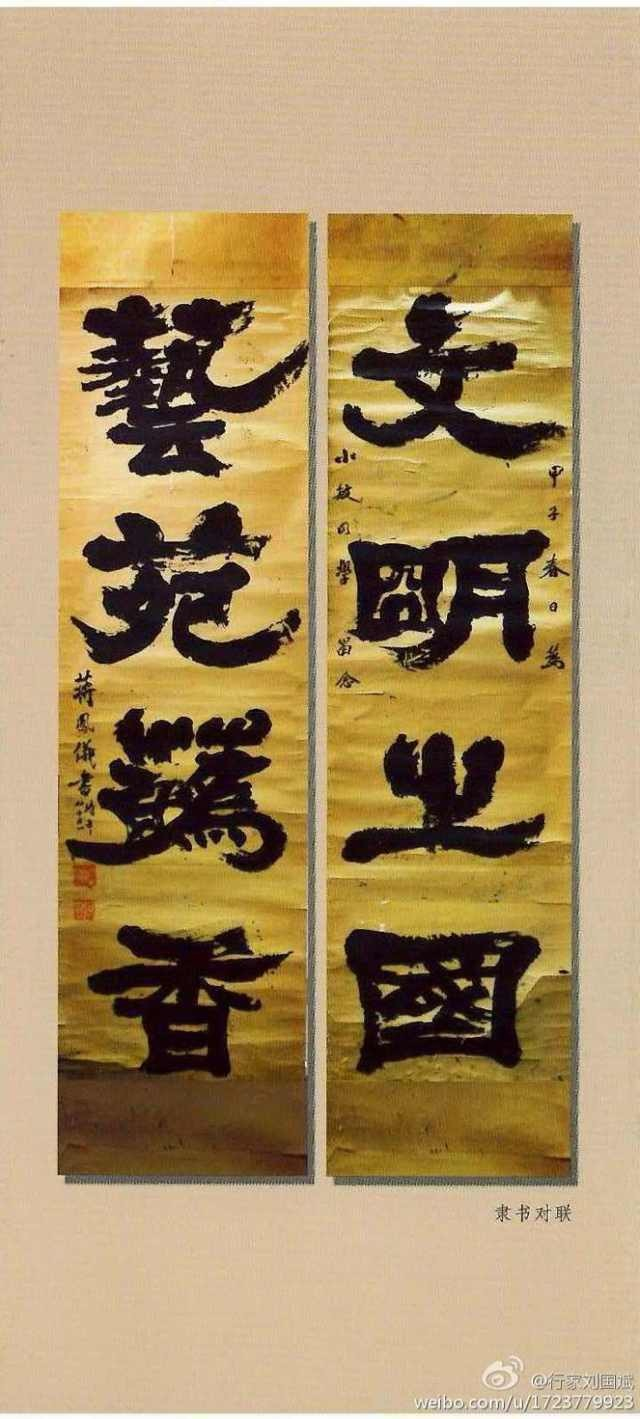 甲子春日為
文朙之國
小敏同學留念
藝苑蘤香
蔣鳳儀書
隶书对联
@行家刘国斌
weibo.com/u/1723779923